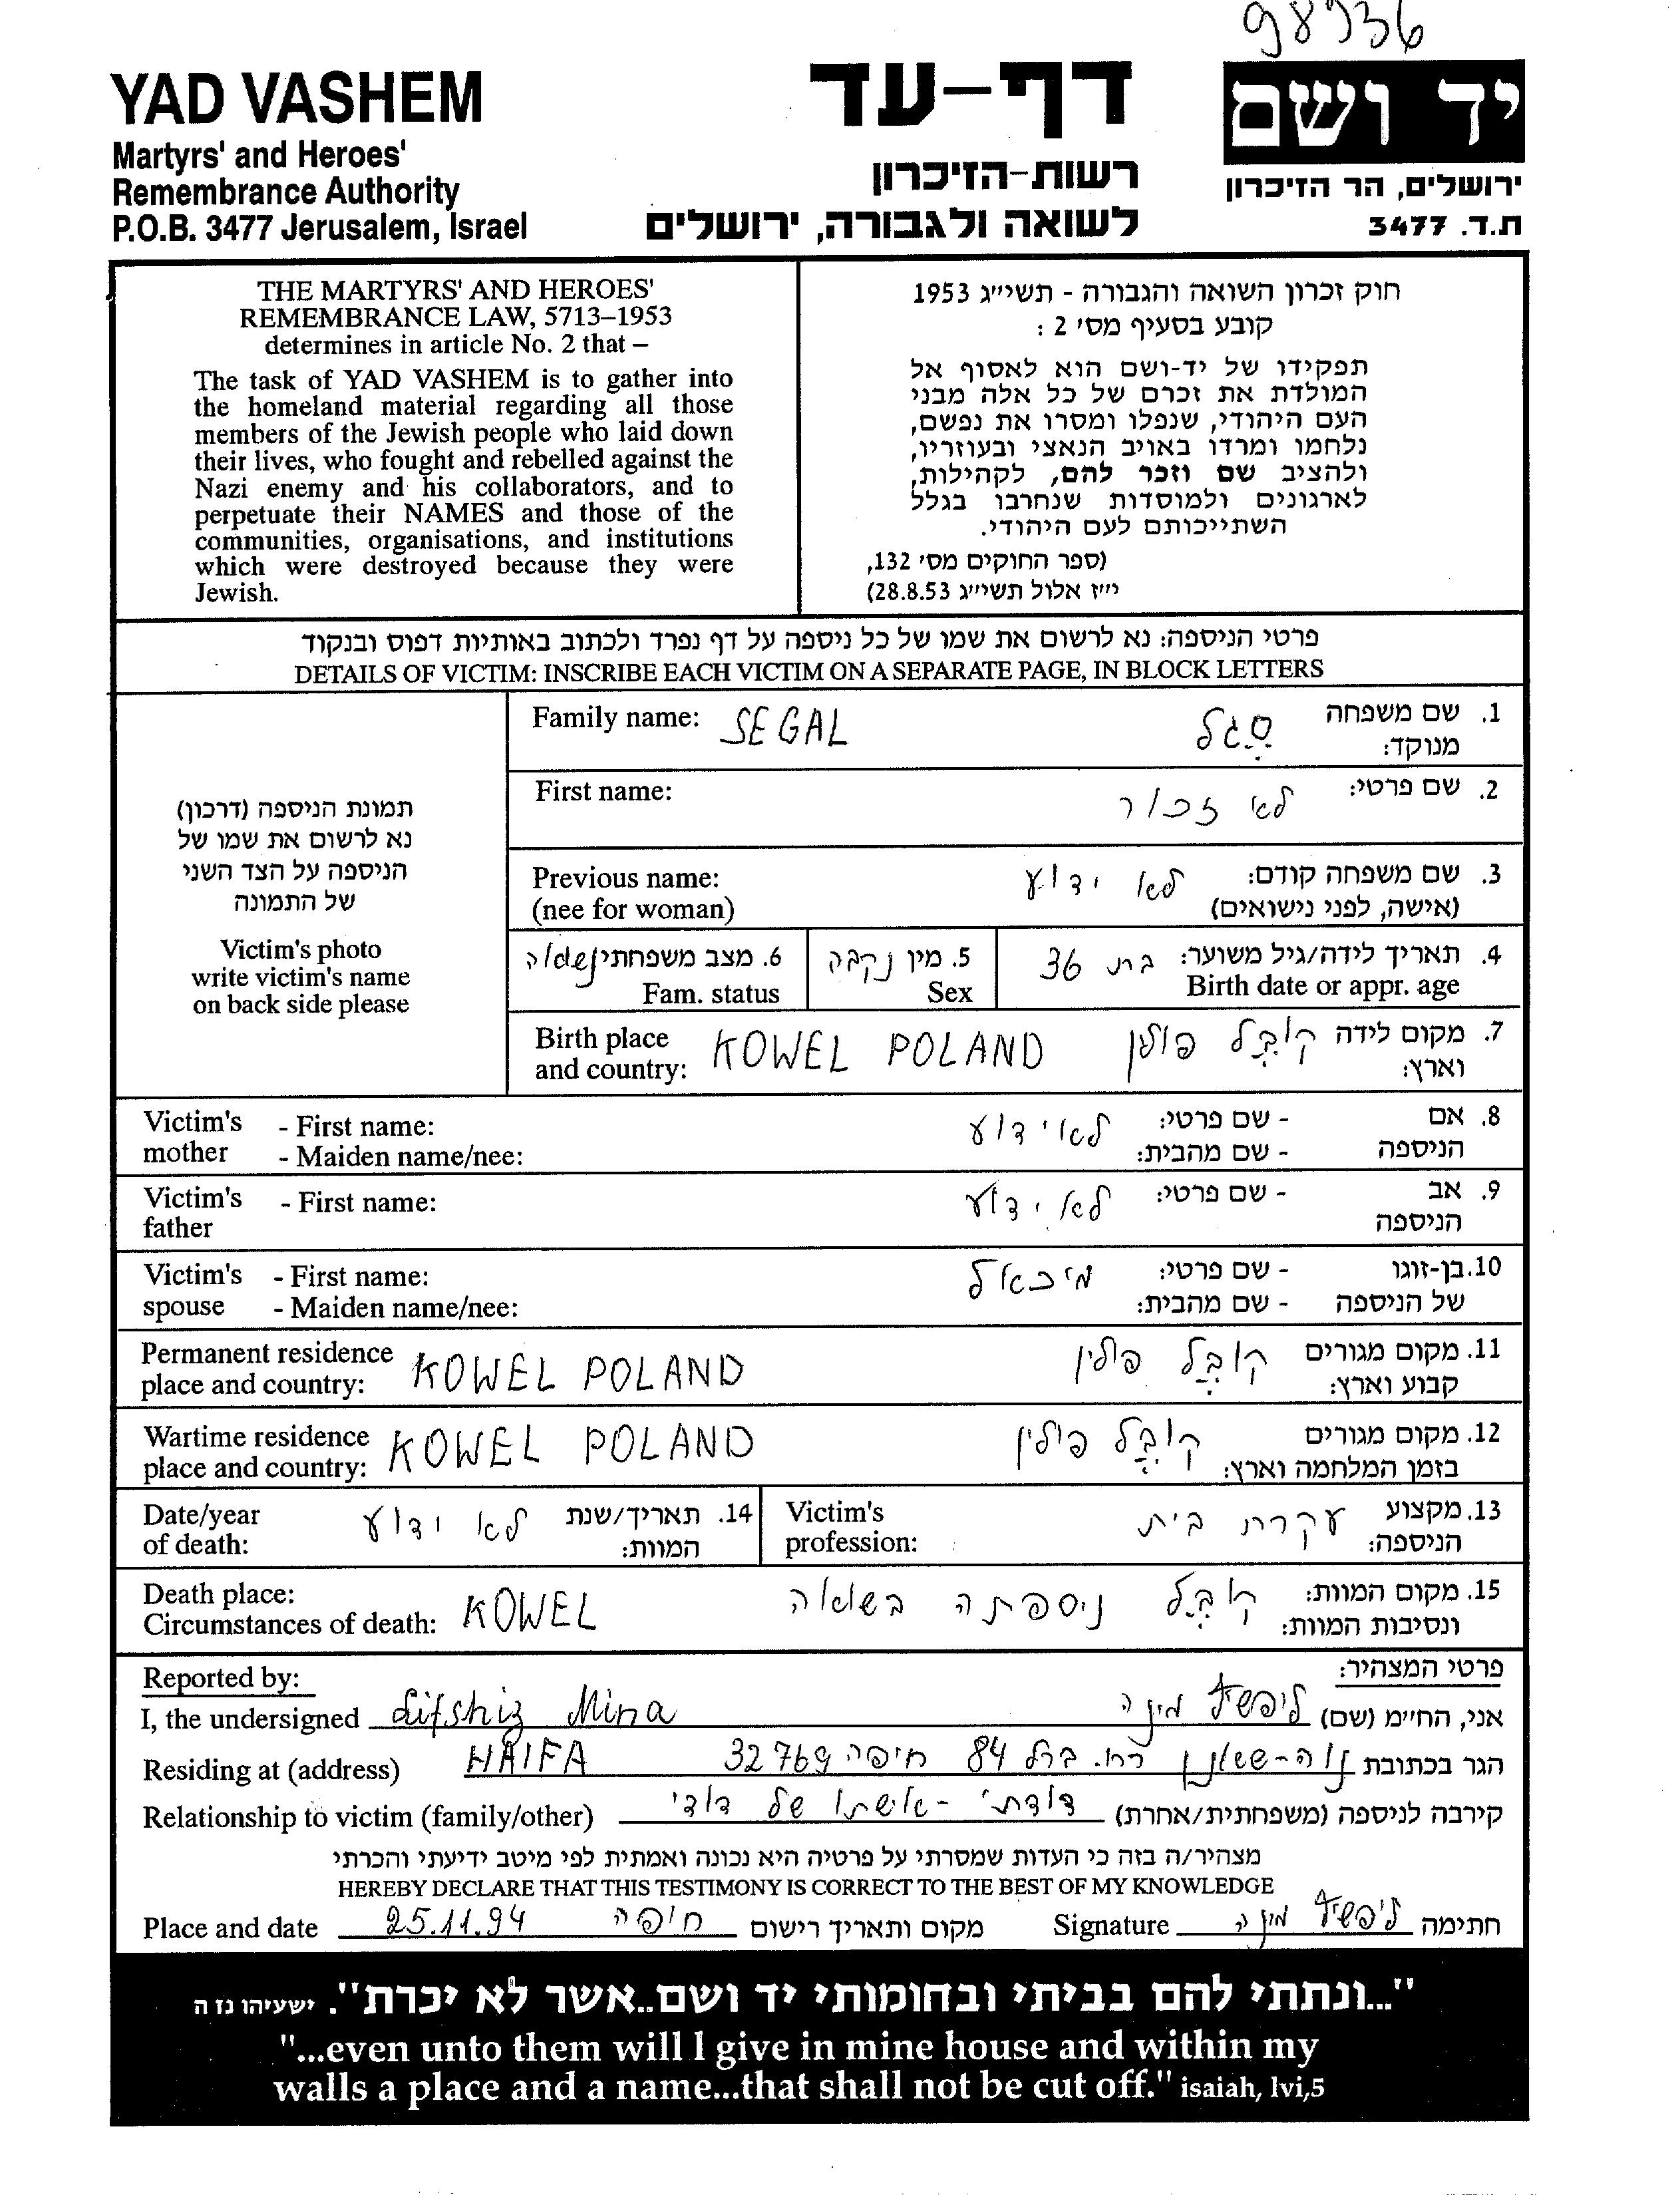 98936
YAD VASHEM
Martyrs' and Heroes'
Remembrance Authority
P.O.B. 3477 Jerusalem, Israel
דף-עד
רשות-הזיכרון
לשואה ולגבורה, ירושלים
יד ושם
ירושלים, הר הזיכרון
ת.ד. 3477
THE MARTYRS' AND HEROES'
REMEMBRANCE LAW, 5713–1953
determines in article No. 2 that –
The task of YAD VASHEM is to gather into
the homeland material regarding all those
members of the Jewish people who laid down
their lives, who fought and rebelled against the
Nazi enemy and his collaborators, and to
perpetuate their NAMES and those of the
communities, organisations, and institutions
which were destroyed because they were
Jewish.
חוק זכרון השואה והגבורה - תשי״ג 1953
קובע בסעיף מס׳ 2 :
תפקידו של יד-ושם הוא לאסוף אל
המולדת את זכרם של כל אלה מבני
העם היהודי, שנפלו ומסרו את נפשם,
נלחמו ומרדו באויב הנאצי ובעוזריו,
ולהציב שם וזכר להם, לקהילות,
לארגונים ולמוסדות שנחרבו בגלל
השתייכותם לעם היהודי.
(ספר החוקים מס׳ 132,
י״ז אלול תשי״ג 28.8.53)
פרטי הניספה: נא לרשום את שמו של כל ניספה על דף נפרד ולכתוב באותיות דפוס ובנקוד
DETAILS OF VICTIM: INSCRIBE EACH VICTIM ON A SEPARATE PAGE, IN BLOCK LETTERS
תמונת הניספה (דרכון)
נא לרשום את שמו של
הניספה על הצד השני
של התמונה
Victim's photo
write victim's name
on back side please
Family name: SEGAL סֶגַל 1. שם משפחה
מנוקד:
First name: לא זכור 2. שם פרטי:
Previous name: לא ידוע 3. שם משפחה קודם:
(nee for woman) (אישה, לפני נישואים)
6. מצב משפחתי נשואה 5. מין נקבה 4. תאריך לידה/גיל משוער: בת 36
Fam. status Sex Birth date or appr. age
Birth place KOWEL POLAND קובֶל פולין 7. מקום לידה
and country: וארץ:
Victim's - First name: לא ידוע - שם פרטי: 8. אם
mother - Maiden name/nee: - שם מהבית: הניספה
Victim's - First name: לא ידוע - שם פרטי: 9. אב
father הניספה
Victim's - First name: מיכאל - שם פרטי: 10. בן-זוגו
spouse - Maiden name/nee: - שם מהבית: של הניספה
Permanent residence KOWEL POLAND קובֶל פולין 11. מקום מגורים
place and country: קבוע וארץ:
Wartime residence KOWEL POLAND קובֶל פולין 12. מקום מגורים
place and country: בזמן המלחמה וארץ:
Date/year לא ידוע 14. תאריך/שנת Victim's עקרת בית 13. מקצוע
of death: המוות: profession: הניספה:
Death place: 15. מקום המוות: קובֶל ניספתה בשואה
Circumstances of death: KOWEL ונסיבות המוות:
Reported by: פרטי המצהיר:
I, the undersigned Lifshiz Mina ליפשיץ מינה אני, החי״מ (שם)
Residing at (address) HAIFA הגר בכתובת נוה-שאנן רח. ברל 84 חיפה 32769
Relationship to victim (family/other) דודתי - אישתו של דודי קירבה לניספה (משפחתית/אחרת)
מצהיר/ה בזה כי העדות שמסרתי על פרטיה היא נכונה ואמתית לפי מיטב ידיעתי והכרתי
HEREBY DECLARE THAT THIS TESTIMONY IS CORRECT TO THE BEST OF MY KNOWLEDGE
Place and date 25.11.94 חיפה מקום ותאריך רישום Signature ליפשיץ מינה חתימה
"...ונתתי להם בביתי ובחומותי יד ושם..אשר לא יכרת". ישעיהו נז ה
"...even unto them will I give in mine house and within my
walls a place and a name...that shall not be cut off." isaiah, lvi,5